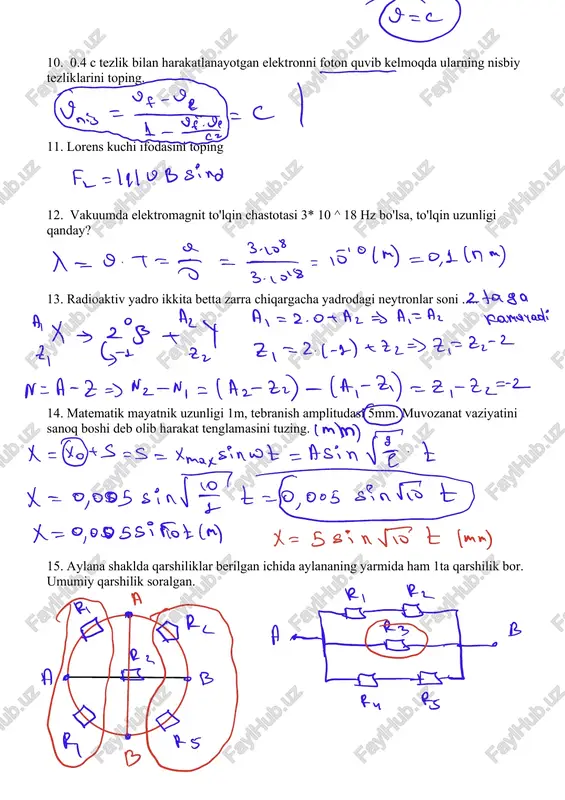 ϑ = c
10. 0.4 c tezlik bilan harakatlanayotgan elektronni foton quvib kelmoqda ularning nisbiy
tezliklarini toping.
ϑnis = (ϑf − ϑe) / (1 − ϑf·ϑe/c²) = c
11. Lorens kuchi ifodasini toping
F_L = |q| ϑ B sinα
12. Vakuumda elektromagnit to'lqin chastotasi 3* 10 ^ 18 Hz bo'lsa, to'lqin uzunligi
qanday?
λ = ϑ · T = ϑ/ν = 3·10⁸ / 3·10¹⁸ = 10⁻¹⁰ (m) = 0,1 (nm)
13. Radioaktiv yadro ikkita betta zarra chiqargacha yadrodagi neytronlar soni . 2 taga
kamayadi
A₁ Z₁ X → 2 ⁰₋₁β + A₂ Z₂ Y
A₁ = 2·0 + A₂ ⇒ A₁ = A₂
Z₁ = 2·(−1) + Z₂ ⇒ Z₁ = Z₂ − 2
N = A − Z ⇒ N₂ − N₁ = (A₂ − Z₂) − (A₁ − Z₁) = Z₁ − Z₂ = −2
14. Matematik mayatnik uzunligi 1m, tebranish amplitudasi 5mm. Muvozanat vaziyatini
sanoq boshi deb olib harakat tenglamasini tuzing. (mm)
X = X₀ + S = S = Xmax sin ωt = A sin √(g/ℓ) · t
X = 0,005 sin √(10/1) t = 0,005 sin √10 t
X = 0,005 sin √10 t (m)
X = 5 sin √10 t (mm)
15. Aylana shaklda qarshiliklar berilgan ichida aylananing yarmida ham 1ta qarshilik bor.
Umumiy qarshilik soralgan.
A
R₁
R₂
R₃
A
B
R₅
B
R₁
R₂
R₃
A
B
R₄
R₅
FaylHub.uz